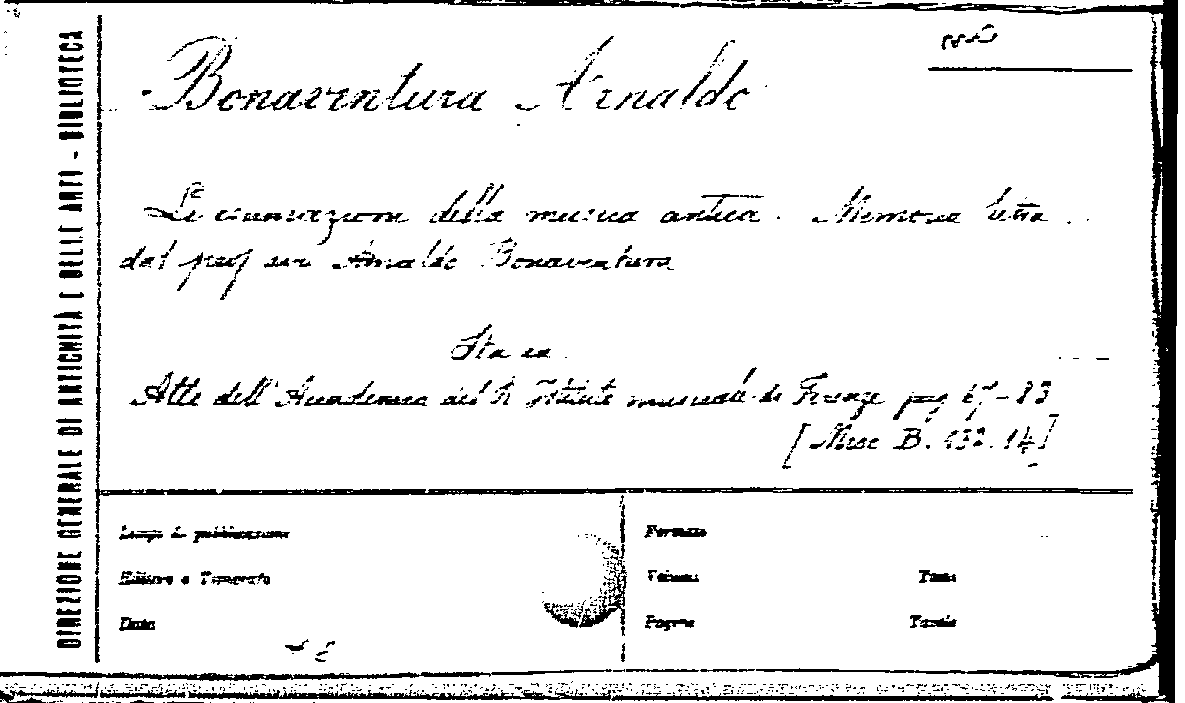 DIREZIONE GENERALE DI ANTICHITÀ E DELLE ARTI - BIBLIOTECA
Bonaventura Arnaldo
Le esumazioni della musica antica. Memoria letta
dal prof. Arnaldo Bonaventura
Sta in
Atti dell'Accademia del R. Istituto musicale di Firenze pag 67-83
[Misc B. 132. 14]
Luogo di pubblicazione
Formato
Editore o Tipografo
Volumi
Tomi
Data
Pagine
Tavole